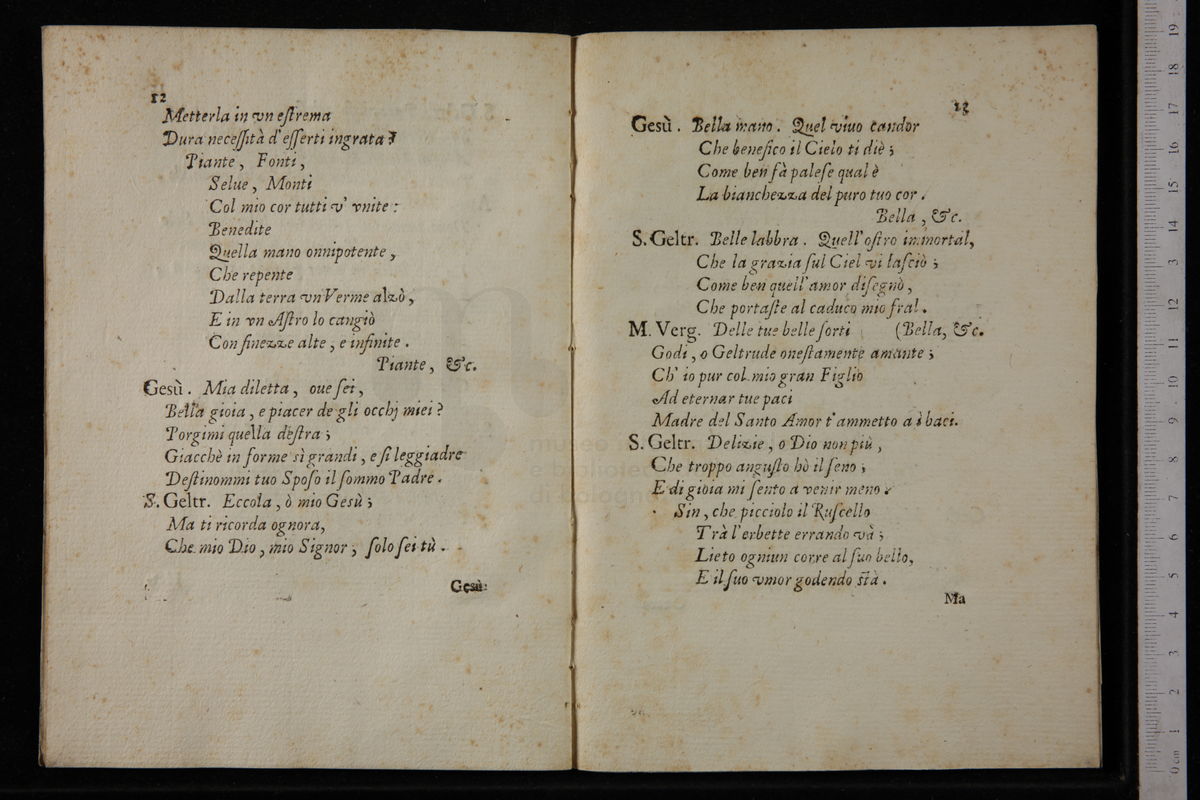 12
Metterla in vn eſtrema
Dura neceſſità d'eſſerti ingrata?
Piante, Fonti,
Selue, Monti
Col mio cor tutti v' vnite:
Benedite
Quella mano onnipotente,
Che repente
Dalla terra vn Verme alzò,
E in vn Aſtro lo cangiò
Con finezze alte, e infinite.
Piante, &c.
Gesù. Mia diletta, oue ſei,
Bella gioia, e piacer de gli occhj miei?
Porgimi quella deſtra;
Giacchè in forme sì grandi, e ſi leggiadre
Deſtinommi tuo Spoſo il ſommo Padre.
S. Geltr. Eccola, ò mio Gesù;
Ma ti ricorda ognora,
Che mio Dio, mio Signor, ſolo ſei tù.
Gesù.
13
Gesù. Bella mano. Quel viuo candor
Che benefico il Cielo ti diè;
Come ben fà paleſe qual è
La bianchezza del puro tuo cor.
Bella, &c.
S. Geltr. Belle labbra. Quell' oſtro immortal,
Che la grazia ſul Ciel vi laſciò;
Come ben quell' amor diſegnò,
Che portaſte al caduco mio fral.
M. Verg. Delle tue belle ſorti (Bella, &c.
Godi, o Geltrude oneſtamente amante;
Ch' io pur col mio gran Figlio
Ad eternar tue paci
Madre del Santo Amor t'ammetto a i baci.
S. Geltr. Delizie, o Dio non più,
Che troppo anguſto hò il ſeno;
E di gioia mi ſento a venir meno.
Sin, che picciolo il Ruſcello
Trà l'erbette errando và;
Lieto ogniun corre al ſuo bello,
E il ſuo vmor godendo ſtà.
Ma
museo
biblioteca
di bologna